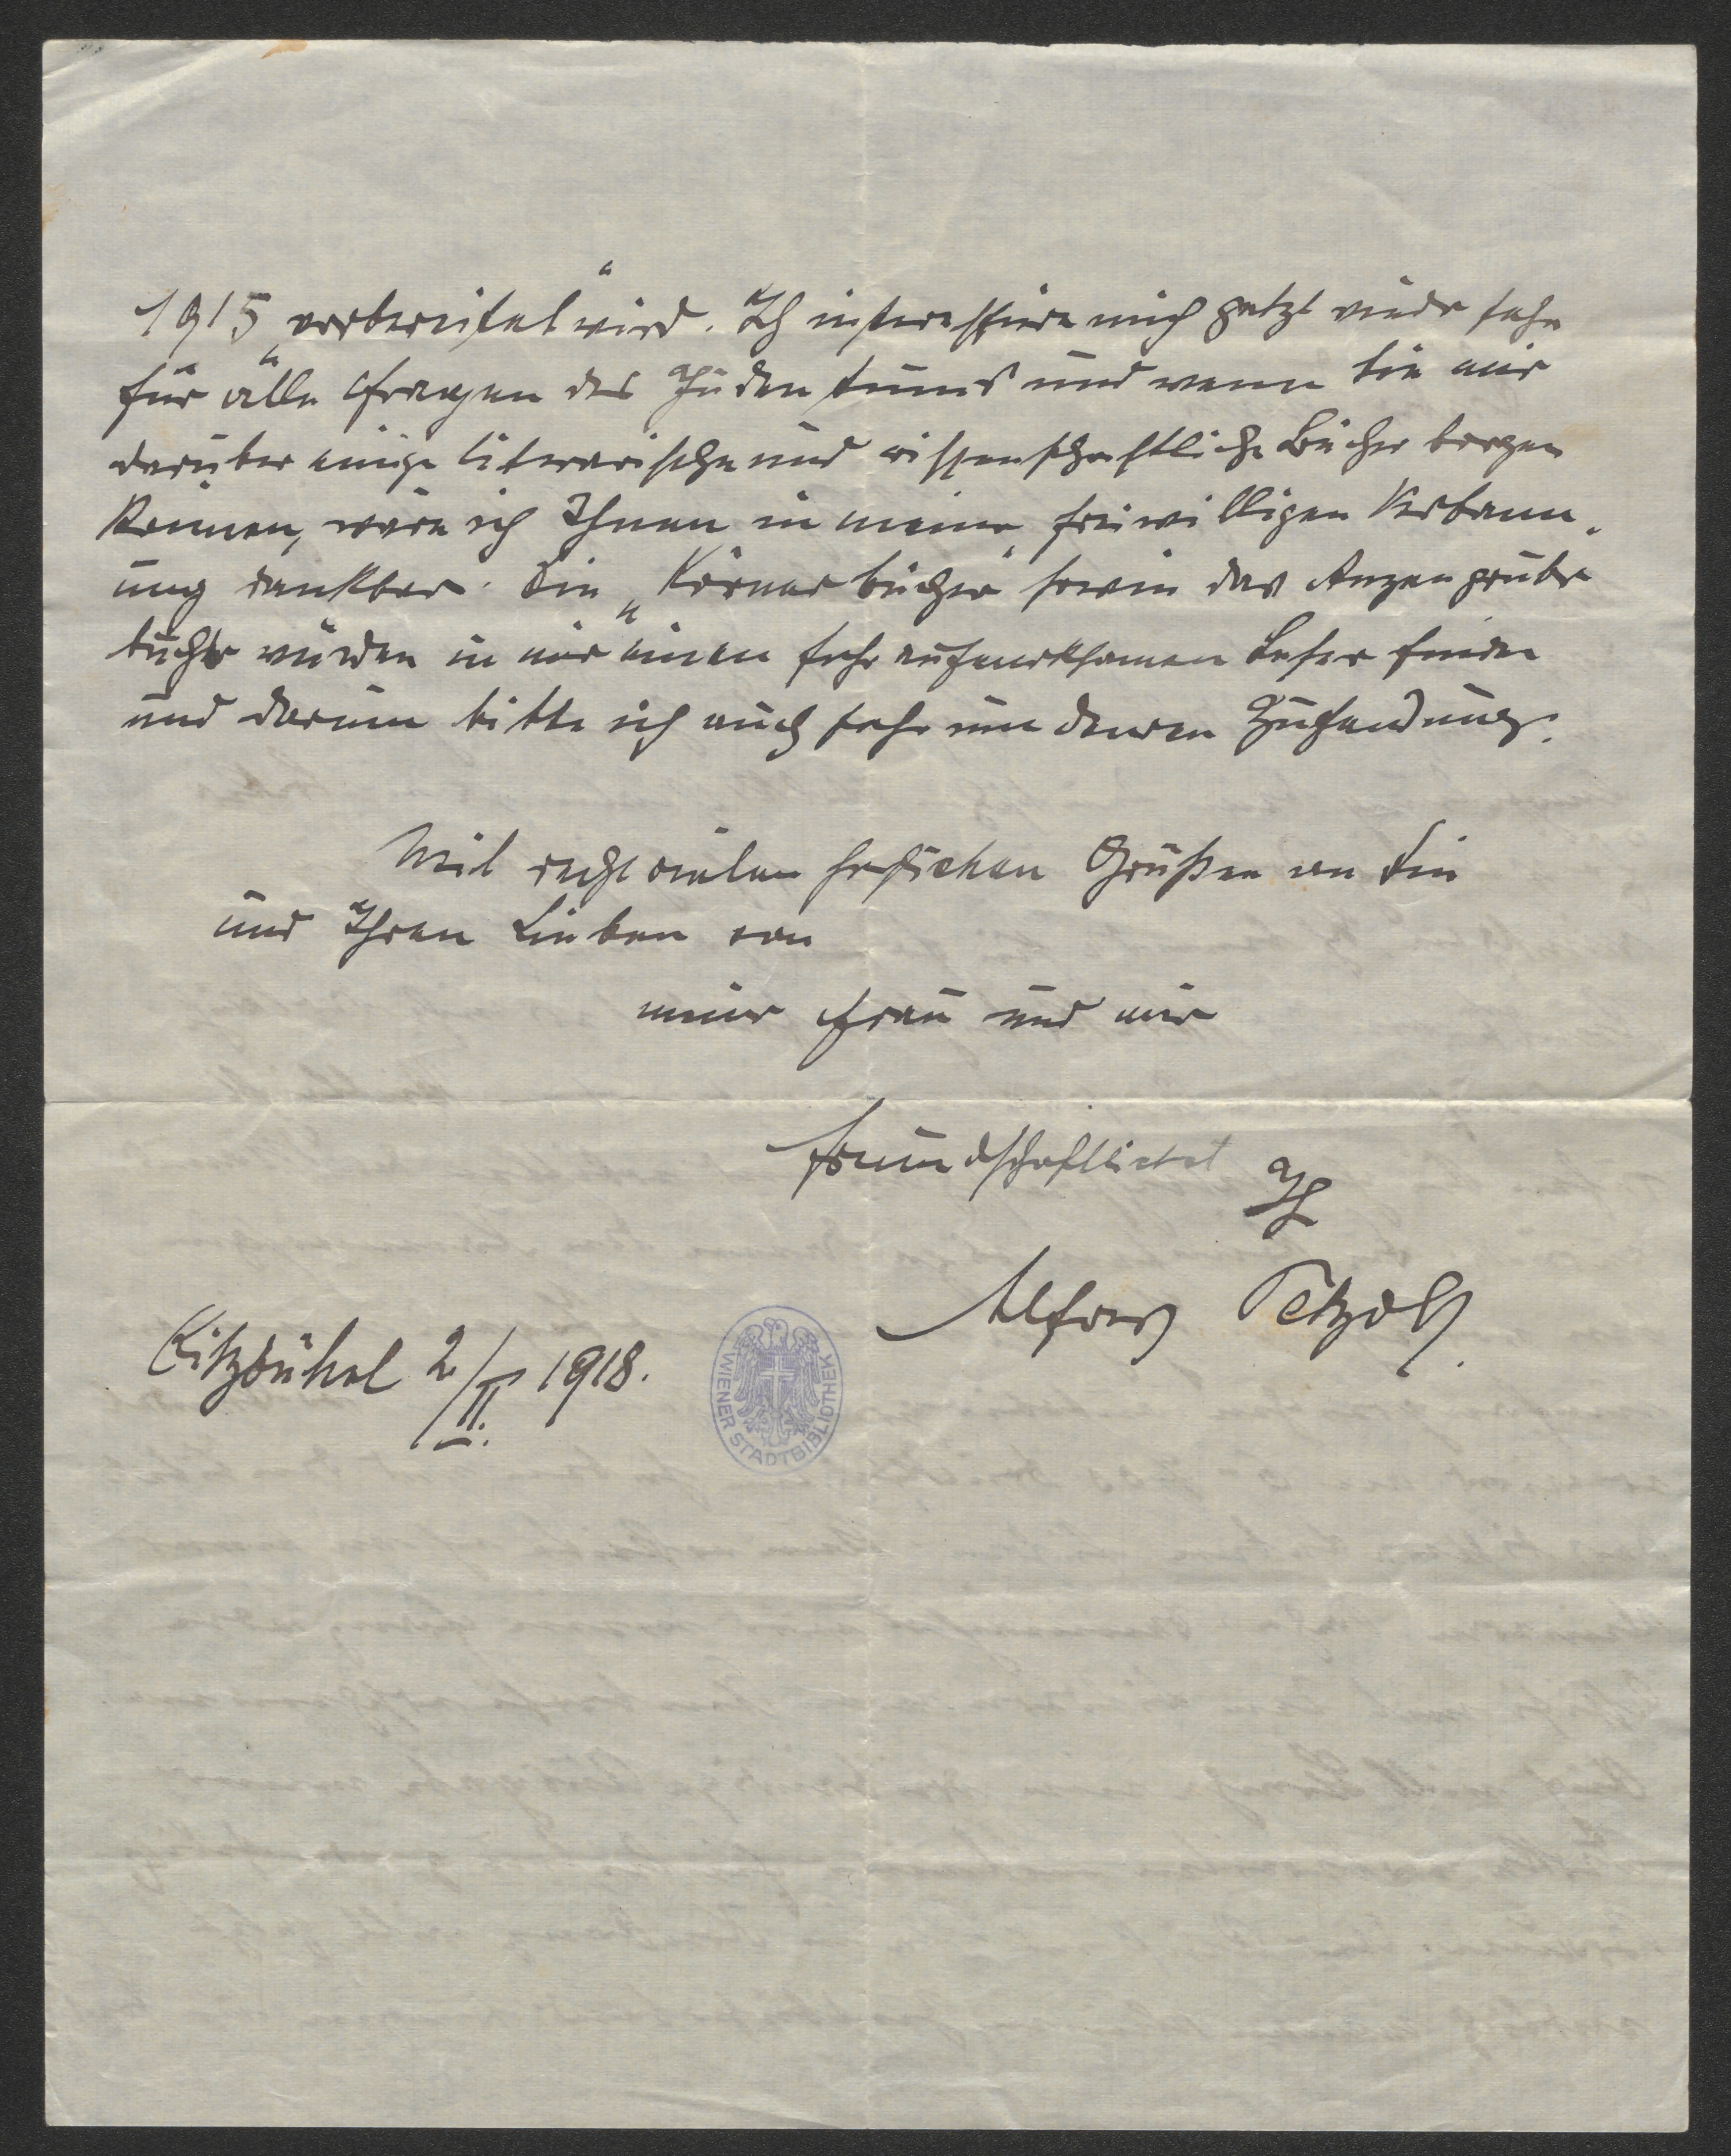 1915 „vorbereitet“ wird. Ich interessiere mich jetzt wieder sehr
für alle Fragen des Judentums und wenn Sie mir
darüber einige literarische und wissenschaftliche Bücher borgen
können, wäre ich Ihnen in meiner freiwilligen Verbann-
ung dankbar. Die „Körnerbücher“ sowie das Anzengruber
buch würden in mir einen sehr aufmerksamen Leser finden
und darum bitte ich auch sehr um deren Zusendung.
Mit recht vielen herzlichen Grüßen an Sie
und Ihren Lieben von
meiner Frau und mir
freundschaftlichst
Ihr
Alfons Petzold.
Kitzbühel 2/II. 1918.
WIENER STADTBIBLIOTHEK